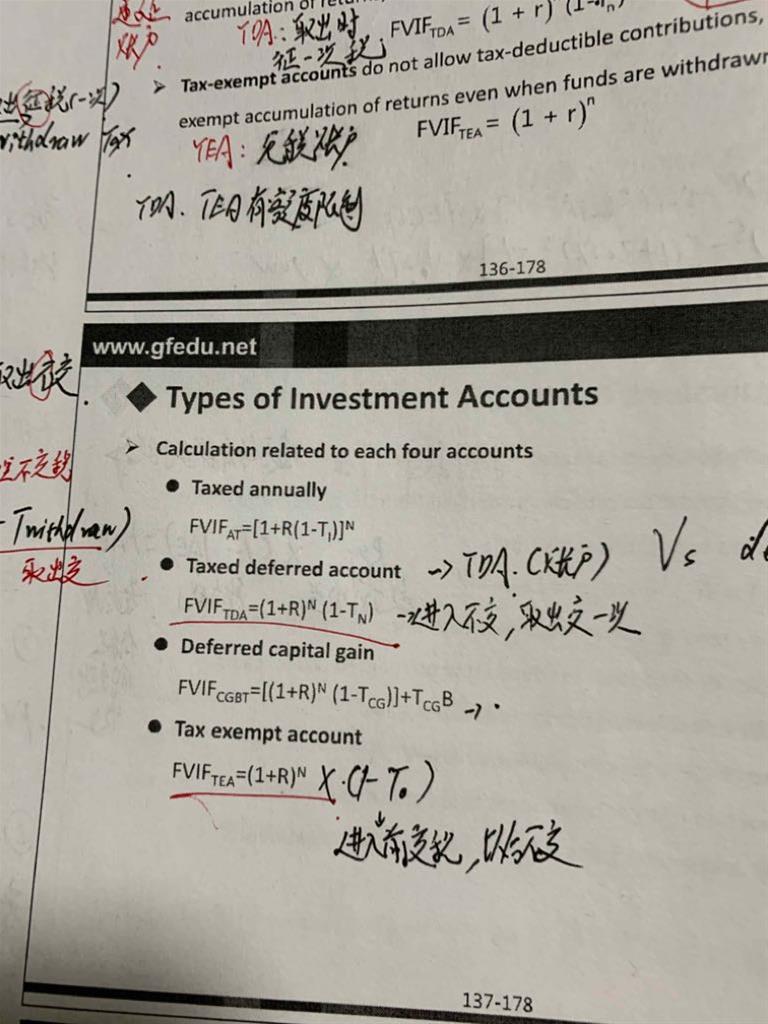 递延
账户
accumulation of
TDA：取出时
征一次税
FVIF_TDA = (1 + r)
➢ Tax-exempt accounts do not allow tax-deductible contributions,
exempt accumulation of returns even when funds are withdrawn
FVIF_TEA = (1 + r)^n
TEA：免税账户
TDA. TEA有额度限制
出征税(一次)
withdraw Tax
136-178
www.gfedu.net
◆ Types of Investment Accounts
➢ Calculation related to each four accounts
● Taxed annually
FVIF_AT=[1+R(1-T_I)]^N
● Taxed deferred account → TDA.(账户) Vs
FVIF_TDA=(1+R)^N (1-T_N) →进入不交，取出交一次
● Deferred capital gain
FVIF_CGBT=[(1+R)^N (1-T_CG)]+T_CG B →.
● Tax exempt account
FVIF_TEA=(1+R)^N X.(1-T₀)
进入前交税，以后不交
不交税
Twithdraw)
取出交
137-178